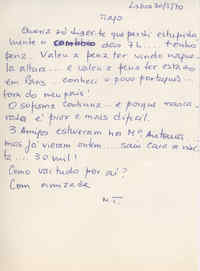 Lisboa 20/5/70
Queria só dizer-te que perdi estupida
mente o comboio das 7h... tenho
pena. Valeu a pena ter vindo naque
la altura... e valeu a pena ter estado
em Paris... conheci o povo português
fora do meu país!
O sofisma continua... e porque masca-
rado é pior e mais difícil.
3 Amigos estiveram na Mª Antónia
mas já vieram ontem... sem caro a
30 mil!
Como vai tudo por aí?
Com amizade